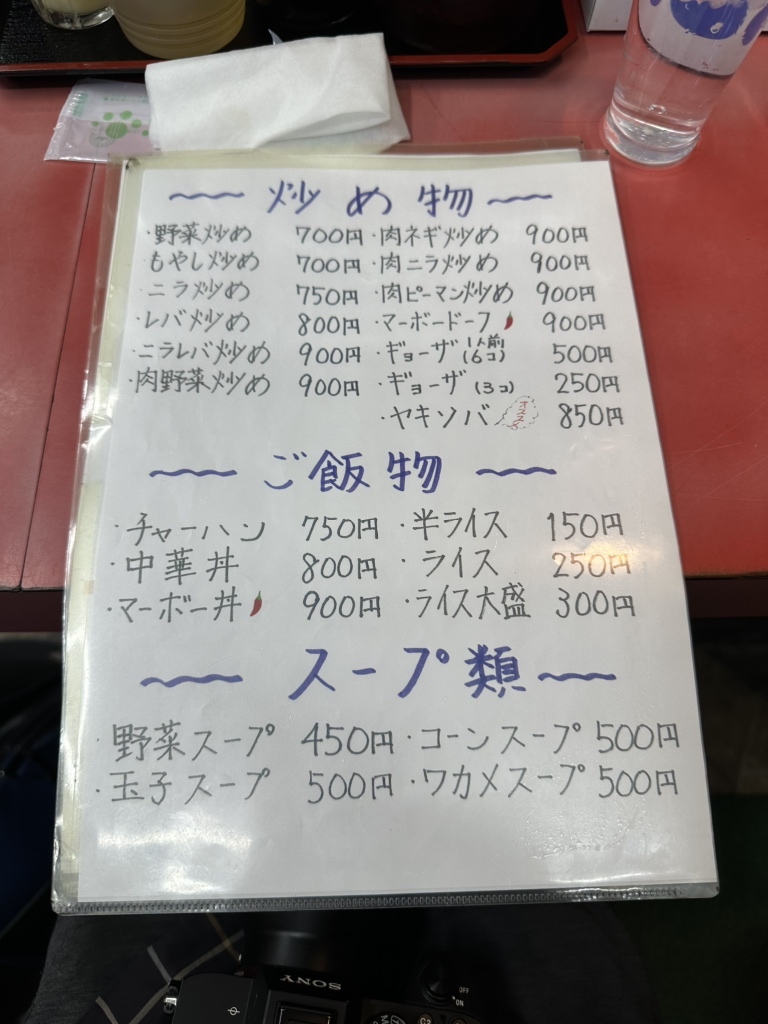 炒め物
・野菜炒め 700円 ・肉ネギ炒め 900円
もやし炒め 700円 ・肉ニラ炒め 900円
・ニラ炒め 750円 ・肉ピーマン炒め 900円
・レバ炒め 800円 ・マーボードーフ 900円
・ニラレバ炒め 900円 ・ギョーザ 1人前(6コ) 500円
・肉野菜炒め 900円 ・ギョーザ(3コ) 250円
・ヤキソバ オススメ 850円
ご飯物
・チャーハン 750円 ・半ライス 150円
・中華丼 800円 ・ライス 250円
・マーボー丼 900円 ・ライス大盛 300円
スープ類
・野菜スープ 450円 ・コーンスープ 500円
・玉子スープ 500円 ・ワカメスープ 500円
SONY
OFF
ON